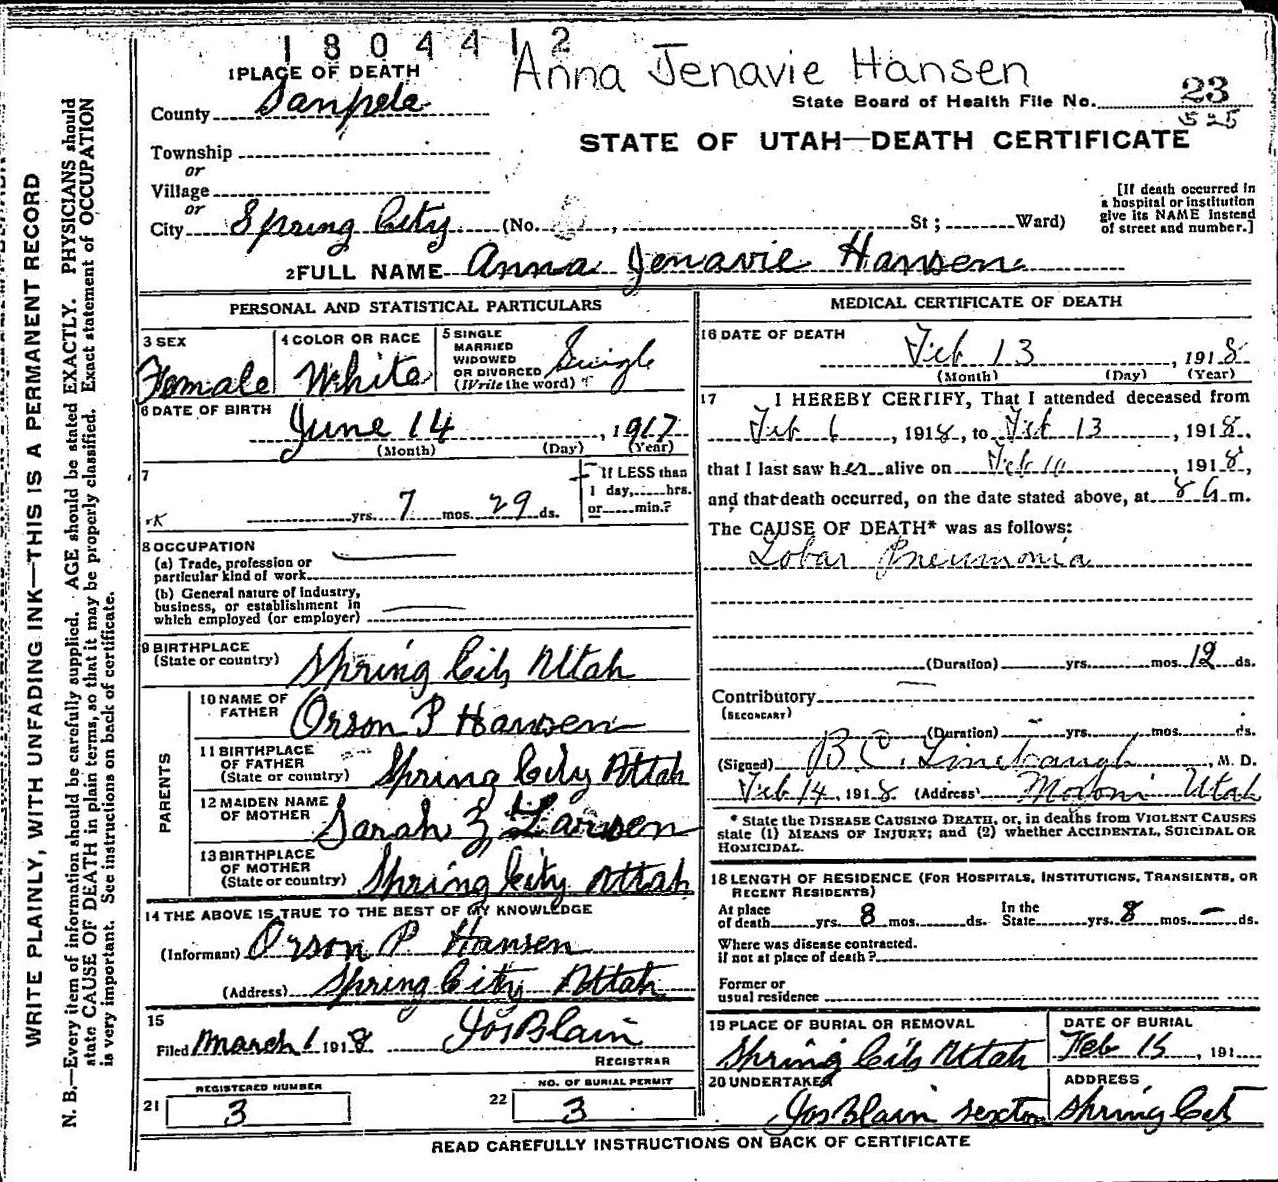 1804412
Anna Jenavie Hansen
1 PLACE OF DEATH
County Sanpete
State Board of Health File No. 23
525
STATE OF UTAH—DEATH CERTIFICATE
Township
or
Village
or
City Spring City (No. , St ; Ward)
[If death occurred in
a hospital or institution
give its NAME instead
of street and number.]
2 FULL NAME Anna Jenavie Hansen
PERSONAL AND STATISTICAL PARTICULARS
3 SEX
Female
4 COLOR OR RACE
White
5 SINGLE
MARRIED
WIDOWED
OR DIVORCED
(Write the word)
Single
6 DATE OF BIRTH
June 14 , 1917
(Month) (Day) (Year)
7
yrs. 7 mos. 29 ds.
If LESS than
1 day, hrs.
or min.?
8 OCCUPATION
(a) Trade, profession or
particular kind of work
(b) General nature of industry,
business, or establishment in
which employed (or employer)
9 BIRTHPLACE
(State or country) Spring City Utah
PARENTS
10 NAME OF
FATHER Orson P Hansen
11 BIRTHPLACE
OF FATHER
(State or country) Spring City Utah
12 MAIDEN NAME
OF MOTHER Sarah Z Larsen
13 BIRTHPLACE
OF MOTHER
(State or country) Spring City Utah
14 THE ABOVE IS TRUE TO THE BEST OF MY KNOWLEDGE
(Informant) Orson P. Hansen
(Address) Spring City Utah
15
Filed March 1 1918 Jos Blain
REGISTRAR
REGISTERED NUMBER
21 3
NO. OF BURIAL PERMIT
22 3
MEDICAL CERTIFICATE OF DEATH
16 DATE OF DEATH
Feb 13 , 1918
(Month) (Day) (Year)
17 I HEREBY CERTIFY, That I attended deceased from
Feb 6 , 1918, to Feb 13 , 1918,
that I last saw her alive on Feb 10 , 1918,
and that death occurred, on the date stated above, at 8 a m.
The CAUSE OF DEATH* was as follows:
Lobar Pneumonia
(Duration) yrs. mos. 12 ds.
Contributory
(SECONDARY)
(Duration) yrs. mos. ds.
(Signed) B C Linebaugh , M. D.
Feb 14, 1918 (Address) Moroni Utah
* State the DISEASE CAUSING DEATH, or, in deaths from VIOLENT CAUSES
state (1) MEANS OF INJURY; and (2) whether ACCIDENTAL, SUICIDAL OR
HOMICIDAL.
18 LENGTH OF RESIDENCE (FOR HOSPITALS, INSTITUTIONS, TRANSIENTS, OR
RECENT RESIDENTS)
At place
of death yrs. 8 mos. ds. In the
State yrs. 8 mos. – ds.
Where was disease contracted.
if not at place of death?
Former or
usual residence
19 PLACE OF BURIAL OR REMOVAL
Spring City Utah
DATE OF BURIAL
Feb 15 , 191
20 UNDERTAKER
Jos Blain sexton
ADDRESS
Spring City
READ CAREFULLY INSTRUCTIONS ON BACK OF CERTIFICATE
WRITE PLAINLY, WITH UNFADING INK—THIS IS A PERMANENT RECORD
N. B.—Every item of information should be carefully supplied. AGE should be stated EXACTLY. PHYSICIANS should
state CAUSE OF DEATH in plain terms, so that it may be properly classified. Exact statement of OCCUPATION
is very important. See instructions on back of certificate.